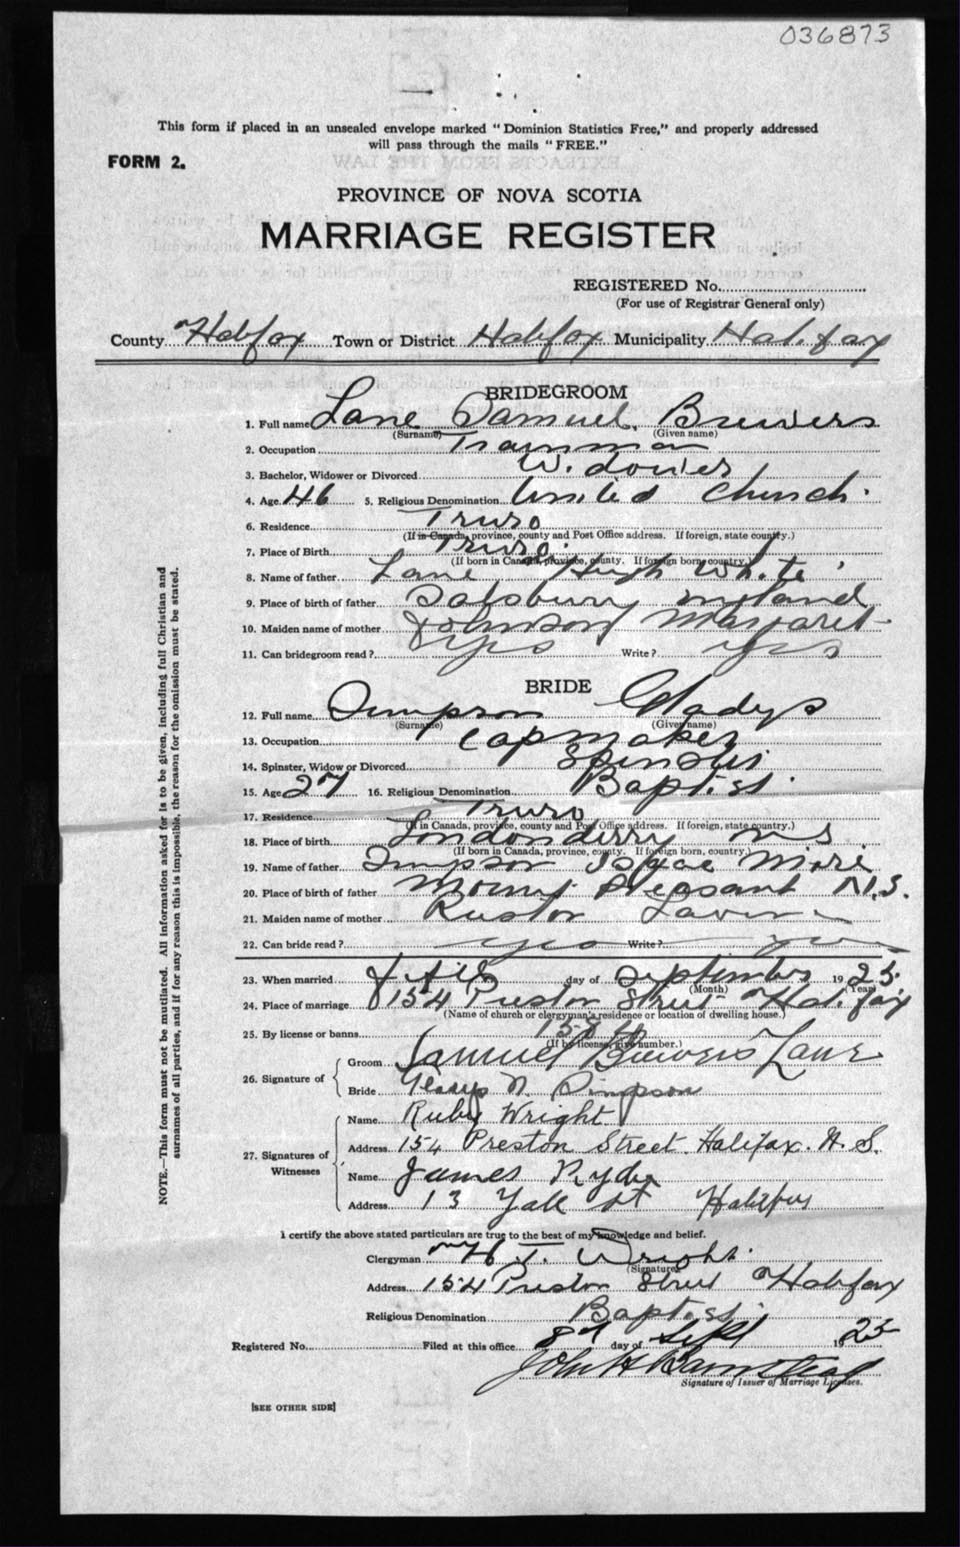 036873
This form if placed in an unsealed envelope marked "Dominion Statistics Free," and properly addressed
will pass through the mails "FREE."
FORM 2.
PROVINCE OF NOVA SCOTIA
MARRIAGE REGISTER
REGISTERED No.
(For use of Registrar General only)
County Halifax Town or District Halifax Municipality Halifax
BRIDEGROOM
1. Full name Lane Samuel Brewers
(Surname) (Given name)
2. Occupation Trainman
3. Bachelor, Widower or Divorced Widower
4. Age 46 5. Religious Denomination United Church
6. Residence Truro
(If in Canada, province, county and Post Office address. If foreign, state county.)
7. Place of Birth Truro
(If born in Canada, province, county. If foreign born country.)
8. Name of father Lane Hugh White
9. Place of birth of father Salsbury
10. Maiden name of mother Johnson Margaret
11. Can bridegroom read? yes Write? yes
BRIDE
12. Full name Simpson Gladys
(Surname) (Given name)
13. Occupation Capmaker
14. Spinster, Widow or Divorced Spinster
15. Age 27 16. Religious Denomination Baptist
17. Residence Truro
(If in Canada, province, county and Post Office address. If foreign, state country.)
18. Place of birth Londonderry N S
(If born in Canada, province, county. If foreign born, country.)
19. Name of father Simpson Isaac
20. Place of birth of father Mount Pleasant N.S.
21. Maiden name of mother
22. Can bride read? yes Write? yes
23. When married day of September 1925
(Month) (Year)
24. Place of marriage 154 Preston Street Halifax
(Name of church or clergyman's residence or location of dwelling house.)
25. By license or banns
(If by license, give number.)
26. Signature of
Groom Samuel Brewers Lane
Bride Gladys N. Simpson
27. Signatures of Witnesses
Name Ruby Wright
Address 154 Preston Street. Halifax. N. S.
Name James Ryder
Address 13 Yale St Halifax
I certify the above stated particulars are true to the best of my knowledge and belief.
Clergyman H. T. Wright.
(Signature)
Address 154 Preston Street Halifax
Religious Denomination Baptist
Registered No. Filed at this office 8th day of Sept 1925
John H Barnstead
Signature of Issuer of Marriage Licenses.
[SEE OTHER SIDE]
NOTE.—This form must not be mutilated. All information asked for is to be given, including full Christian and
surnames of all parties, and if for any reason this is impossible, the reason for the omission must be stated.